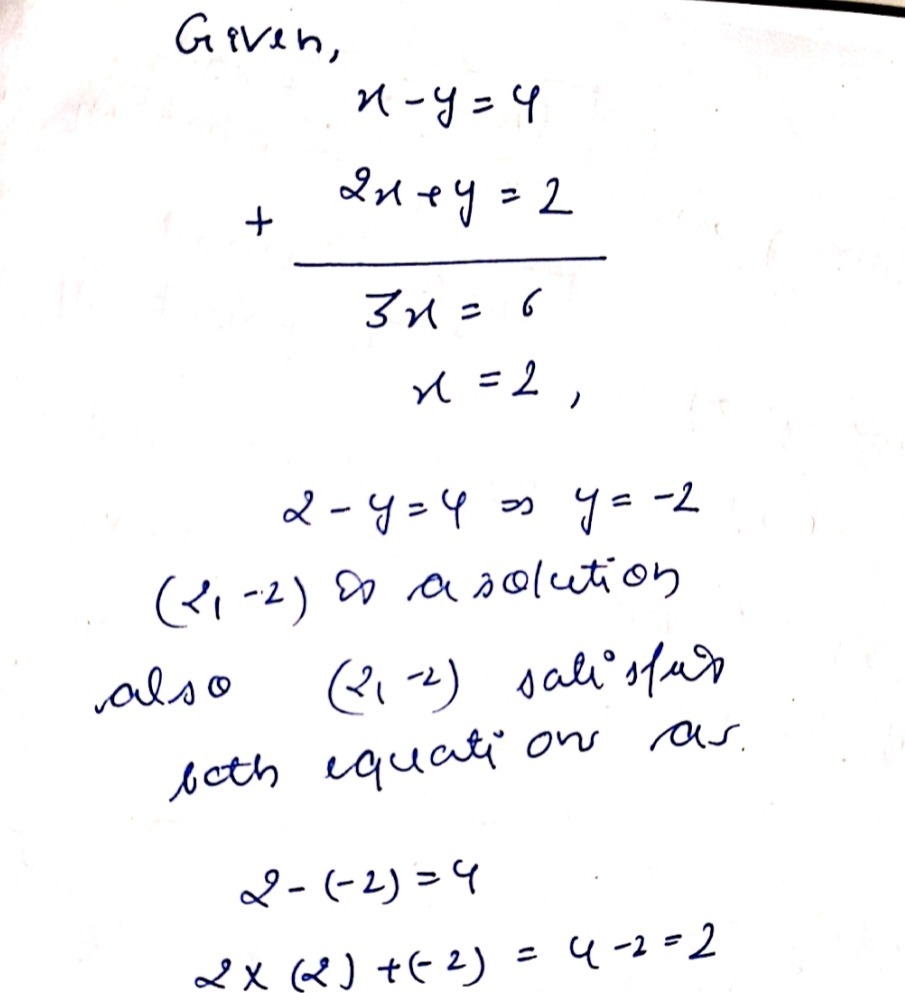 Given,
x - y = 4
+ 2x + y = 2
3x = 6
x = 2 ,
2 - y = 4 ⇒ y = -2
(2, -2) is a solution
also (2, -2) satisfies
both equations as.
2 - (-2) = 4
2 × (2) + (-2) = 4 - 2 = 2